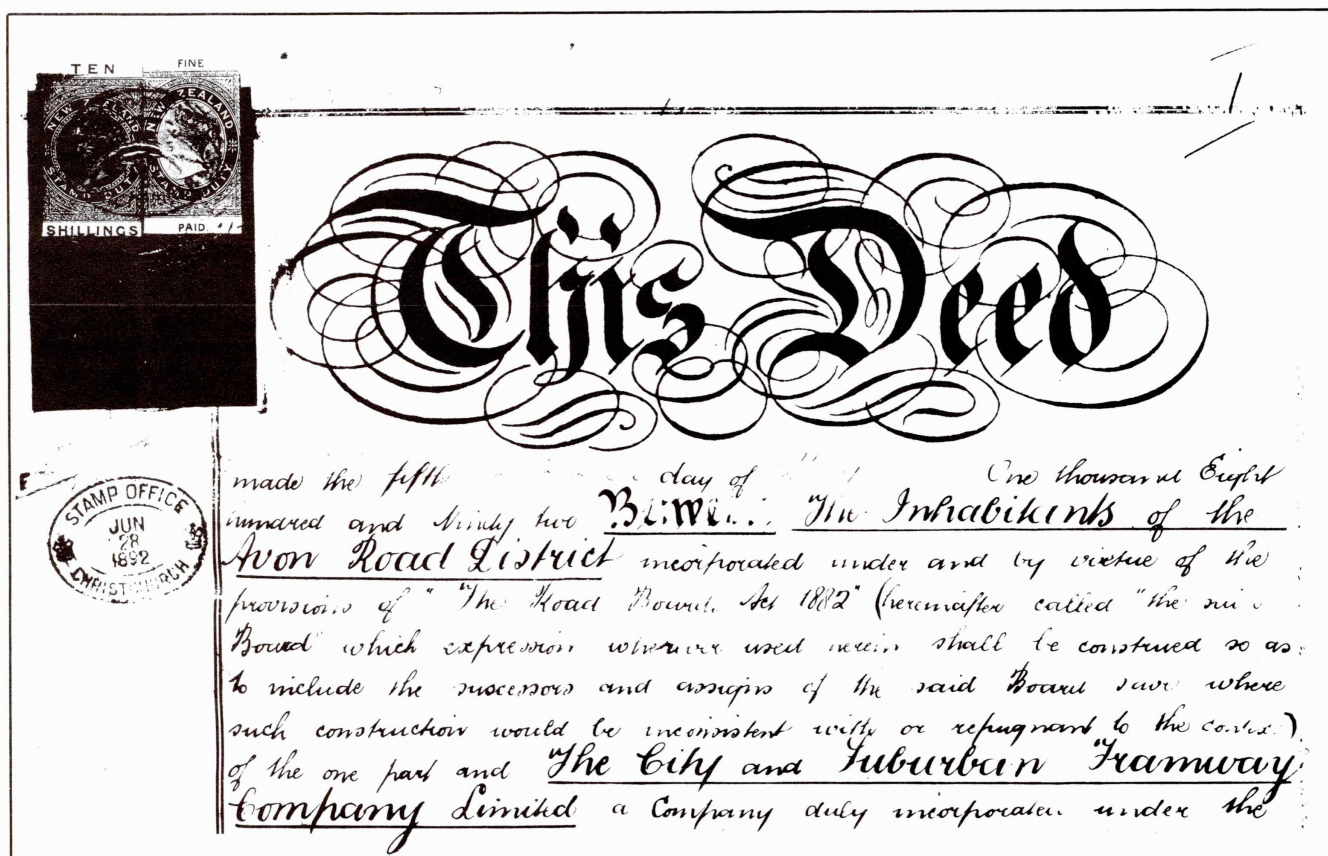 TEN
FINE
NEW ZEALAND
STAMP DUTY
NEW ZEALAND
STAMP DUTY
SHILLINGS
PAID.
This Deed
STAMP OFFICE
JUN
28
1892
CHRISTCHURCH
made the fifth day of One thousand Eight
hundred and Ninety two Between "The Inhabitants of the
Avon Road District incorporated under and by virtue of the
provisions of "The Road Boards Act 1882" (hereinafter called "the said
Board" which expression wherever used herein shall be construed so as
to include the successors and assigns of the said Board save where
such construction would be inconsistent with or repugnant to the context)
of the one part and The City and Suburban Tramway
Company Limited a Company duly incorporated under the